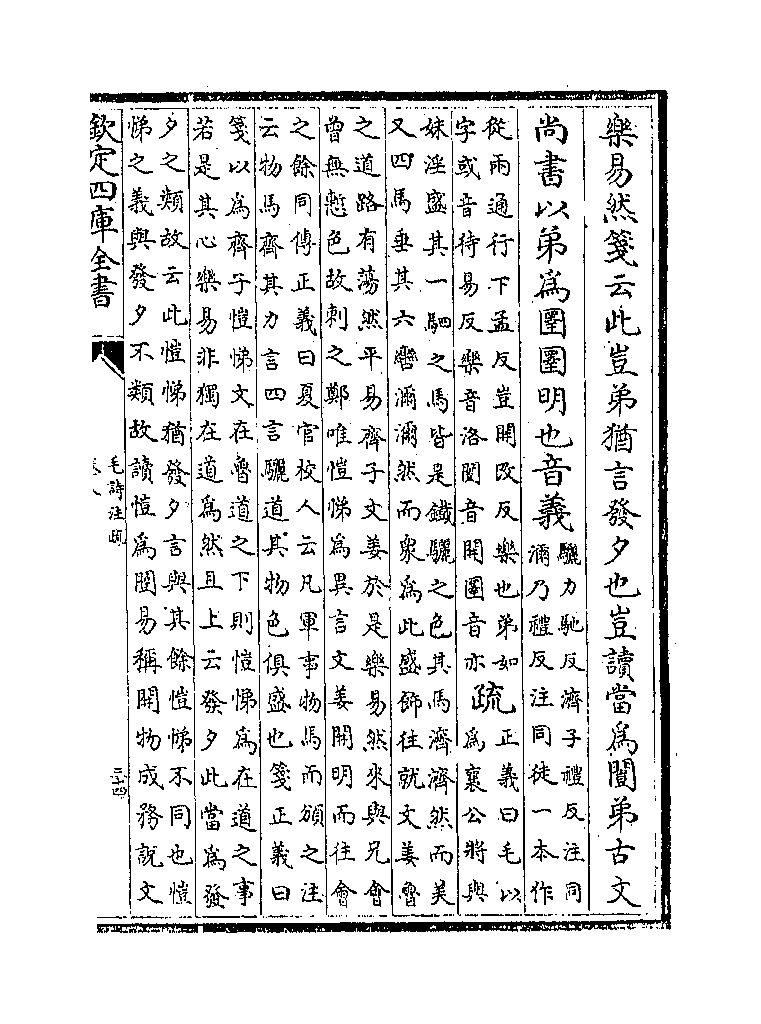 樂易然箋云此豈弟猶言發夕也豈讀當為闓弟古文
尚書以弟為圛圛明也音義
驪力馳反濟子禮反注同
濔乃禮反注同徒一本作
從兩通行下孟反豈開改反樂也弟如
字或音待易反樂音洛闓音開圛音亦
疏
正義曰毛以
為襄公將與
妹淫盛其一駟之馬皆是鐵驪之色其馬濟濟然而美
又四馬垂其六轡濔濔然而衆為此盛飾往就文姜魯
之道路有蕩然平易齊子文姜於是樂易然來與兄會
曾無慙色故刺之鄭唯愷悌為異言文姜開明而往會
之餘同傳正義曰夏官校人云凡軍事物馬而頒之注
云物馬齊其力言四言驪道其物色俱盛也箋正義曰
箋以為齊子愷悌文在魯道之下則愷悌為在道之事
若是其心樂易非獨在道為然且上云發夕此當為發
夕之類故云此愷悌猶發夕言與其餘愷悌不同也愷
悌之義與發夕不類故讀愷為闓易稱開物成務說文
欽定四庫全書
毛詩注疏
卷八
二十四